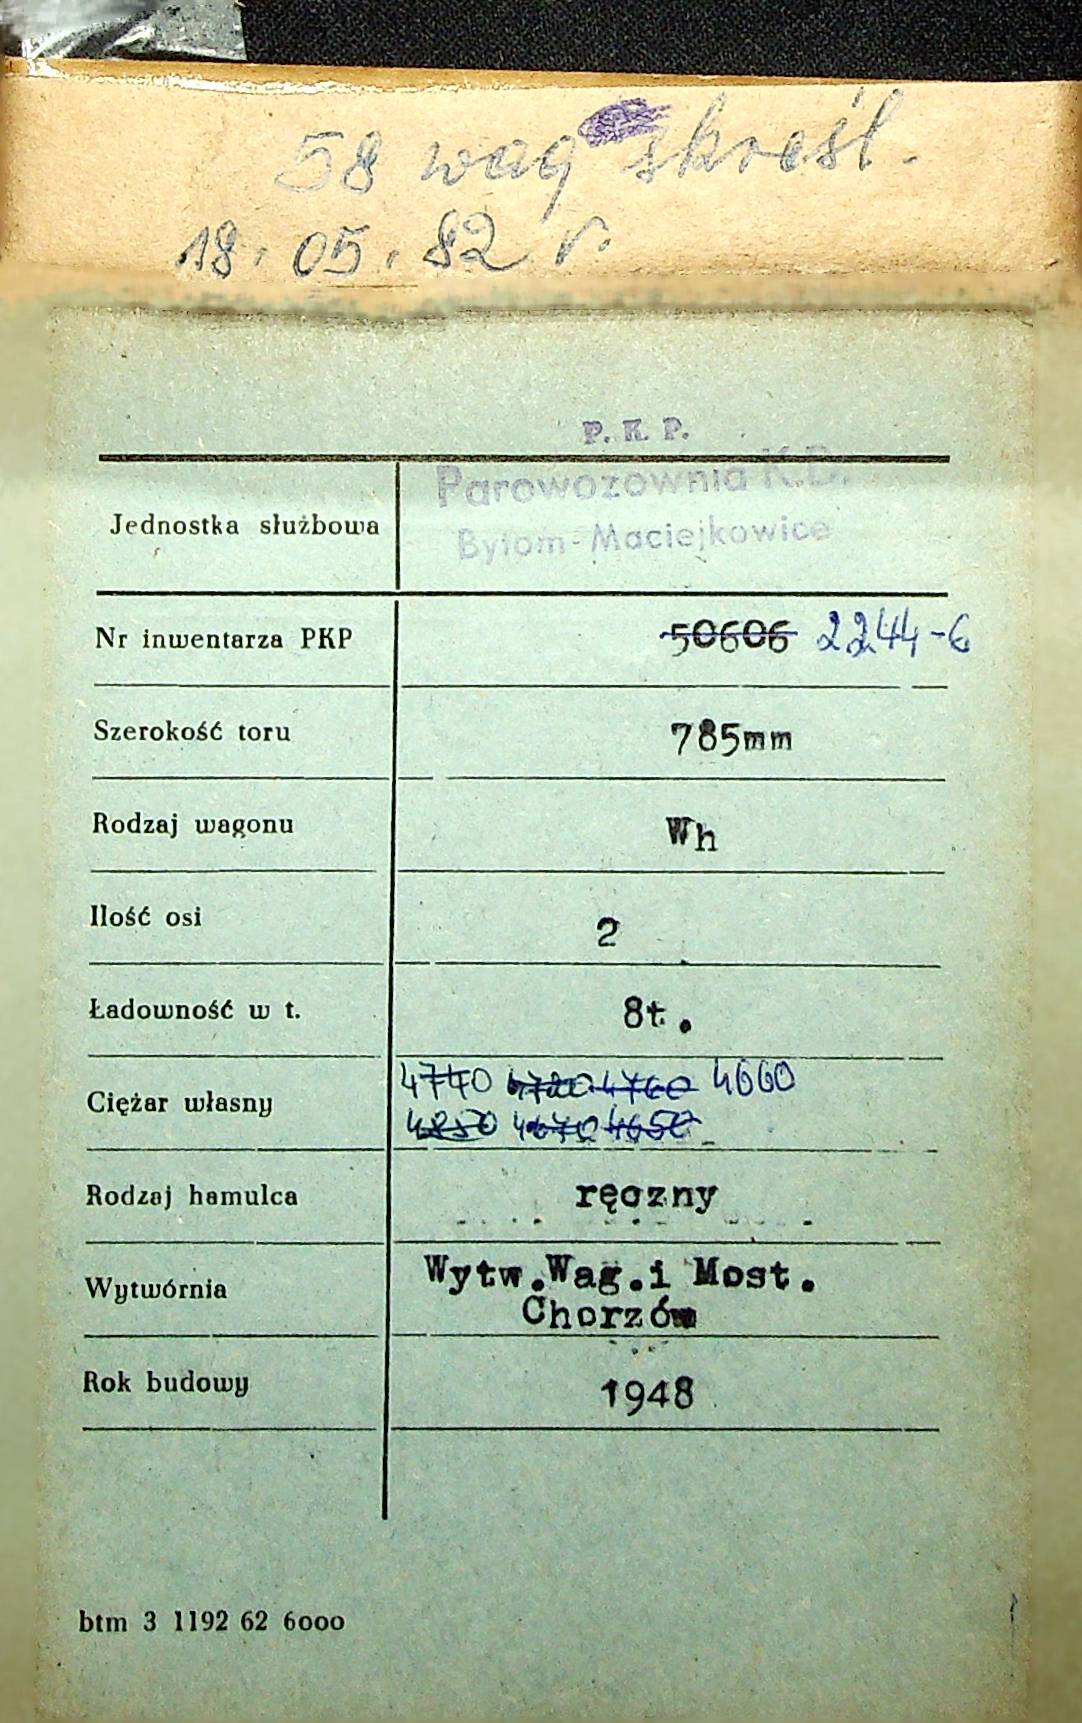 58 wag skreśl.
18.05.82 r.
P. K. P.
Parowozownia K.D.
Bytom-Maciejkowice
Jednostka służbowa
Nr inwentarza PKP 50606 2244-6
Szerokość toru 785mm
Rodzaj wagonu Wh
Ilość osi 2
Ładowność w t. 8t.
4740 4720 4760 4660
Ciężar własny
4850 4670 4650
Rodzaj hamulca ręczny
Wytwórnia Wytw.Wag.i Most.
Chorzów
Rok budowy 1948
btm 3 1192 62 6000